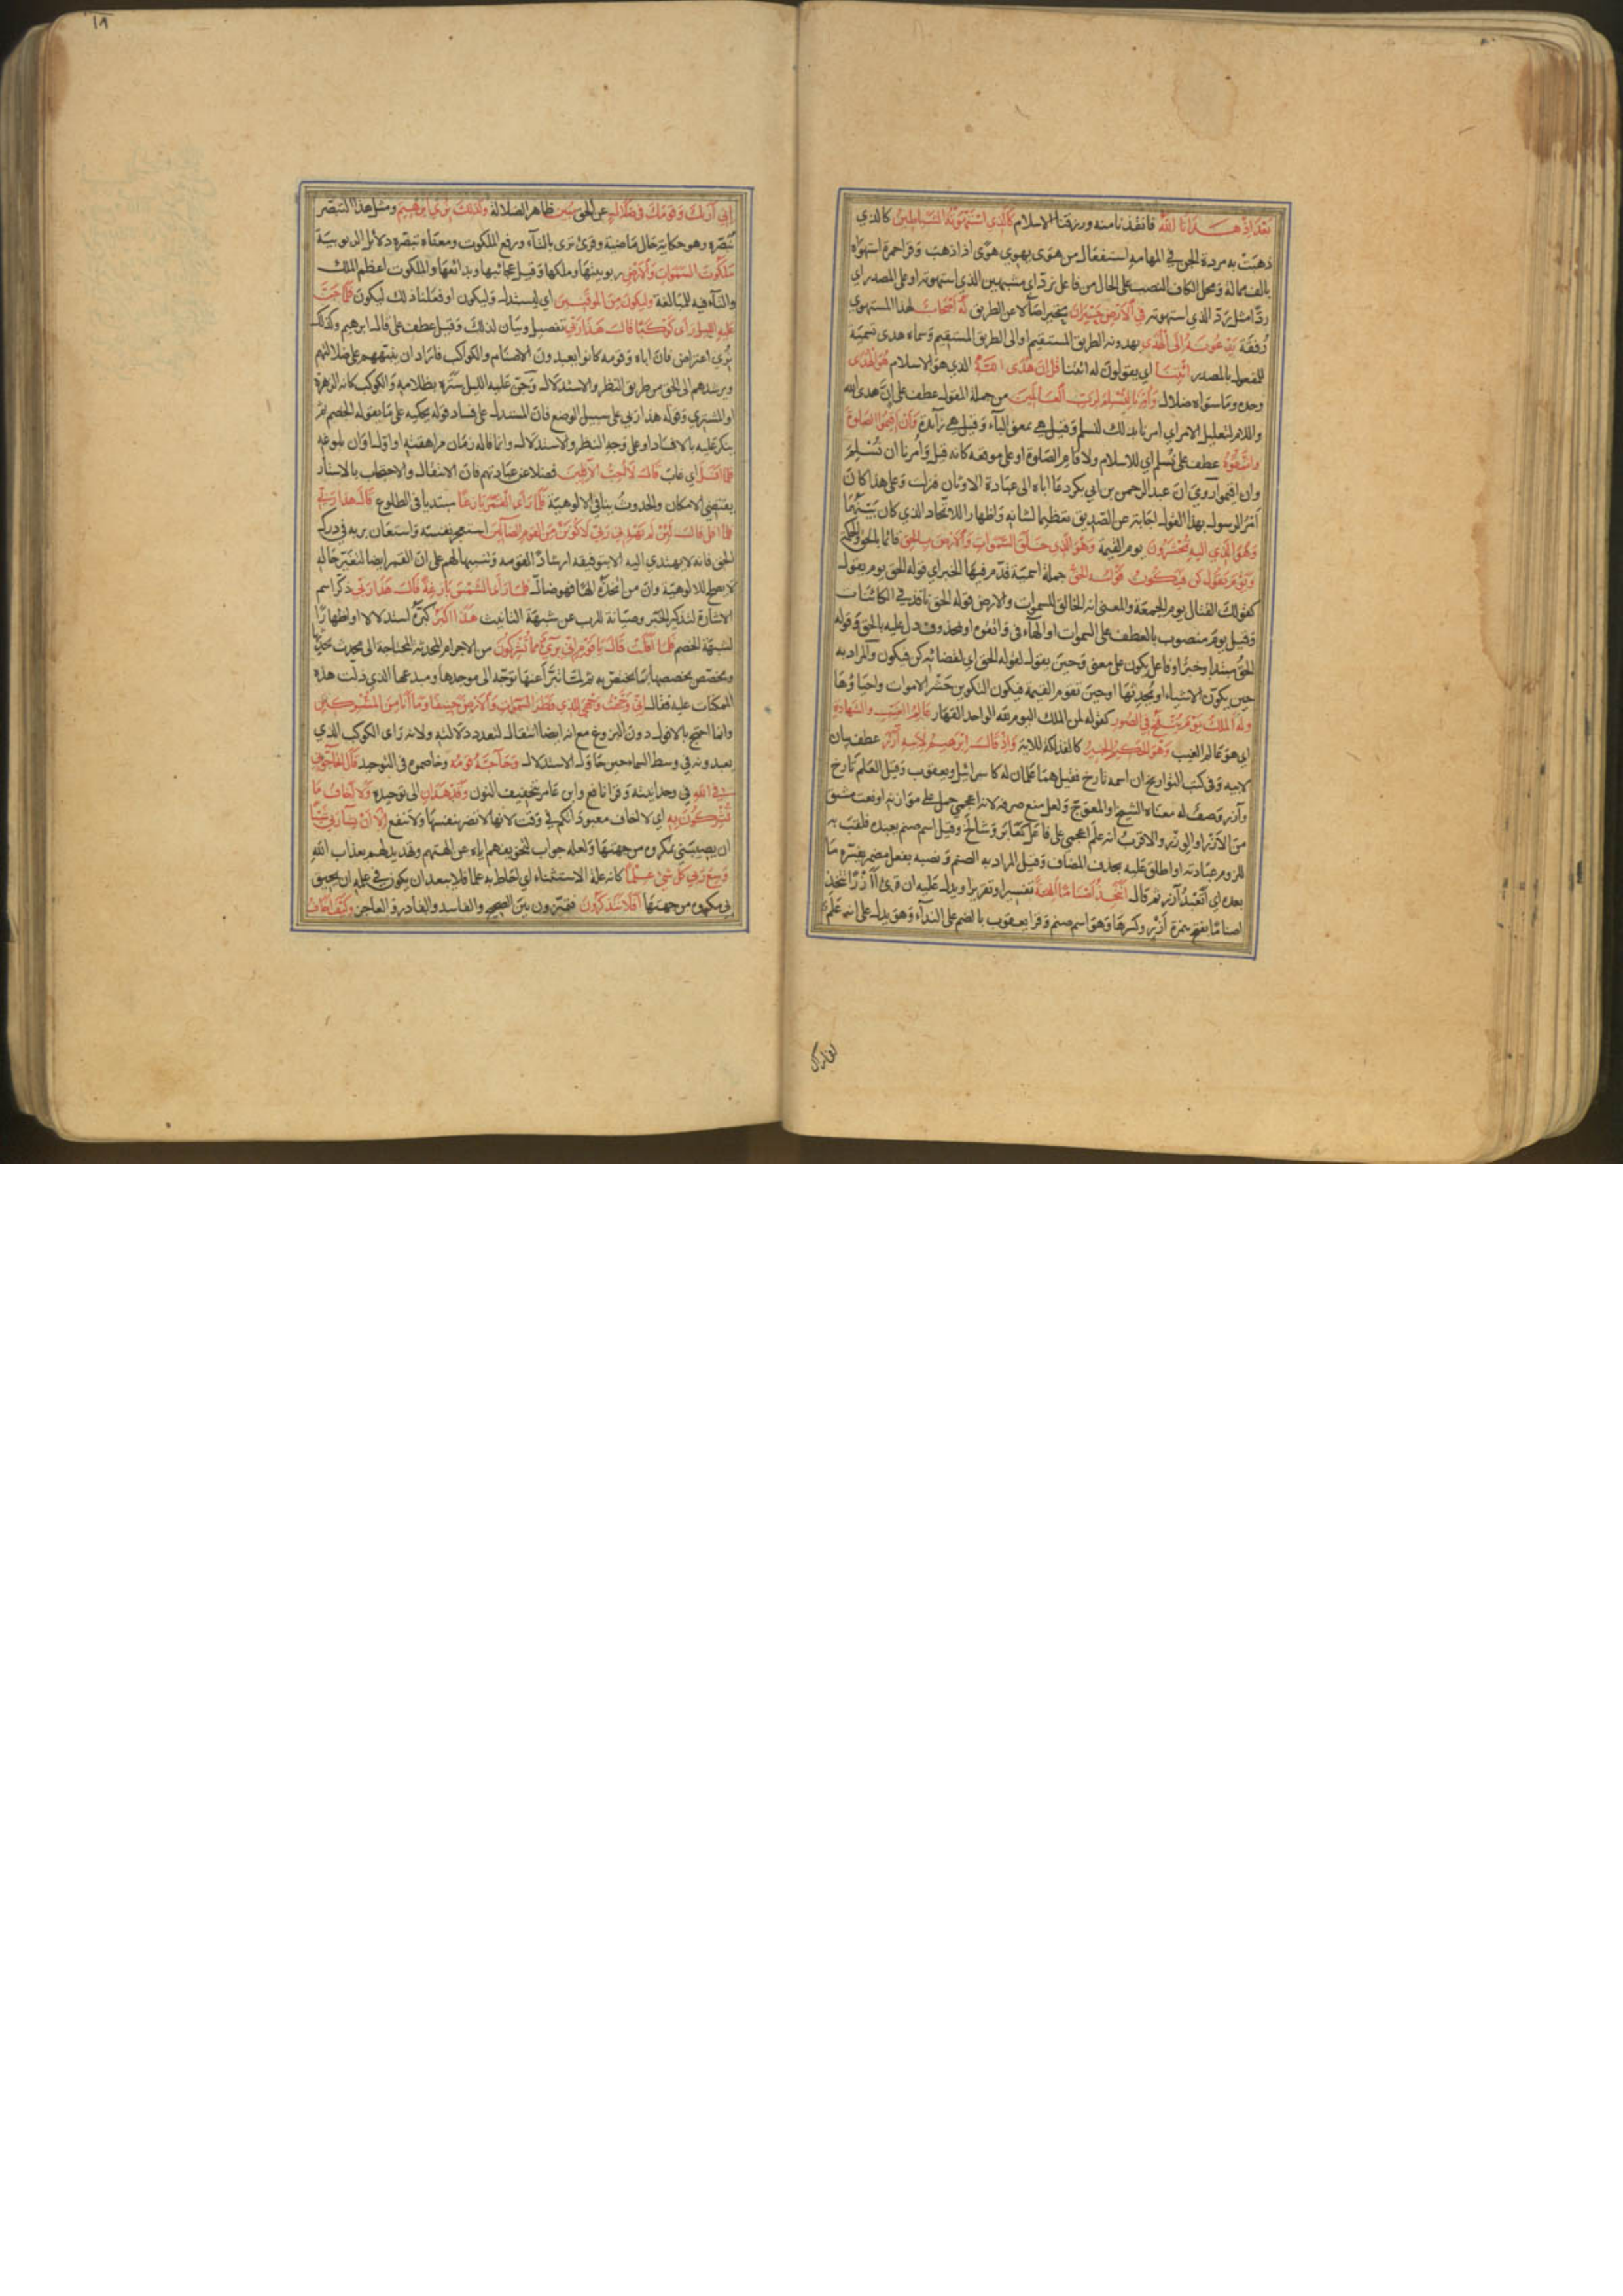 بَعْدَ اِذْ هَدَانَا اللّٰهُ فانقذنا منه ورزقنا الاسلام كَالَّذِي اسْتَهْوَتْهُ الشَّيَاطِينُ كالذي
ذهبت به مردة الجن في المهامه استفعال من هوى يهوي هوى اذا ذهب وقرا حمزة استهواه
بالف ممالة ومحل الكاف النصب على الحال من فاعل نرد اي مشبهين الذي استهوته او على المصدر اي
ردا مثل رد الذي استهوته فِي الْاَرْضِ حَيْرَانَ متحيرا ضالا عن الطريق لَهُ اَصْحَابٌ لهذا المستهوي
رفقة يَدْعُونَهُ اِلَى الْهُدَى يهدونه الطريق المستقيم او الى الطريق المستقيم وسماه هدى تسمية
للمفعول بالمصدر ائْتِنَا اي يقولون له ائتنا قُلْ اِنَّ هُدَى اللّٰهِ الذي هو الاسلام هُوَ الْهُدَى
وحده وما سواه ضلال وَاُمِرْنَا لِنُسْلِمَ لِرَبِّ الْعَالَمِينَ من جملة المقول عطف على ان هدى الله
واللام لتعليل الامر اي امرنا بذلك لنسلم وقيل هي بمعنى الباء وقيل هي زائدة وَاَنْ اَقِيمُوا الصَّلٰوةَ
وَاتَّقُوهُ عطف على لنسلم اي للاسلام ولاقام الصلوة او على موقعه كانه قيل وامرنا ان نسلم
وان اقيموا روي ان عبد الرحمن بن ابي بكر دعا اباه الى عبادة الاوثان فنزلت وعلى هذا كان
امر الرسول بهذا القول اجابة عن الصديق تعظيما لشانه واظهارا للاتحاد الذي كان بينهما
وَهُوَ الَّذِي اِلَيْهِ تُحْشَرُونَ يوم القيمة وَهُوَ الَّذِي خَلَقَ السَّمٰوَاتِ وَالْاَرْضَ بِالْحَقِّ قائما بالحق والحكمة
وَيَوْمَ يَقُولُ كُنْ فَيَكُونُ قَوْلُهُ الْحَقُّ جملة اسمية قدم فيها الخبر اي قوله الحق يوم يقول
كقولك القتال يوم الجمعة والمعنى انه الخالق للسموات والارض وقوله الحق نافذ في الكائنات
وقيل يوم منصوب بالعطف على السموات او الهاء في واتقوه او بمحذوف دل عليه بالحق وقوله
الحق مبتدا وخبر او فاعل يكون على معنى وحين يقول لقوله الحق اي لقضائه كن فيكون والمراد به
حين يكون الاشياء او يحدثها او حين تقوم القيمة فيكون التكوين حشر الاموات واحياؤها
وَلَهُ الْمُلْكُ يَوْمَ يُنْفَخُ فِي الصُّورِ كقوله لمن الملك اليوم لله الواحد القهار عَالِمُ الْغَيْبِ وَالشَّهَادَةِ
اي هو عالم الغيب وَهُوَ الْحَكِيمُ الْخَبِيرُ كالفذلكة للاية وَاِذْ قَالَ اِبْرٰهِيمُ لِاَبِيهِ اٰزَرَ عطف بيان
لابيه وفي كتب التواريخ ان اسمه تارخ فقيل هما علمان له كاسرائيل ويعقوب وقيل العلم تارخ
وآزر وصف له معناه الشيخ او المعوج ولعل منع صرفه لانه اعجمي حمل على موازنه او نعت مشتق
من الازر او الوزر والاقرب انه علم اعجمي على فاعل كعابر وشالخ وقيل اسم صنم يعبده فلقب به
للزوم عبادته او اطلق عليه بحذف المضاف وقيل المراد به الصنم ونصبه بفعل مضمر يفسره ما
بعده اي اتعبد آزر ثم قال اَتَتَّخِذُ اَصْنَامًا اٰلِهَةً تفسيرا وتقريرا ويدل عليه ان قرئ أأزرا تتخذ
اصناما بفتح همزة ازر وكسرها وهو اسم صنم وقرا يعقوب بالضم على النداء وهو يدل على انه علم
اِنِّي اَرٰىكَ وَقَوْمَكَ فِي ضَلَالٍ عن الحق مُبِينٍ ظاهر الضلالة وَكَذٰلِكَ نُرِي اِبْرٰهِيمَ ومثل هذا التبصير
نبصره وهو حكاية حال ماضية وقرئ ترى بالتاء ورفع الملكوت ومعناه تبصره دلائل الربوبية
مَلَكُوتَ السَّمٰوَاتِ وَالْاَرْضِ ربوبيتها وملكها وقيل عجائبها وبدائعها والملكوت اعظم الملك
والتاء فيه للمبالغة وَلِيَكُونَ مِنَ الْمُوقِنِينَ اي ليستدل وليكون او فعلنا ذلك ليكون فَلَمَّا جَنَّ
عَلَيْهِ اللَّيْلُ رَاٰى كَوْكَبًا قَالَ هٰذَا رَبِّي تفصيل وبيان لذلك وقيل عطف على قال ابرهيم وكذلك
نري اعتراض فان اباه وقومه كانوا يعبدون الاصنام والكواكب فاراد ان ينبههم على ضلالتهم
ويرشدهم الى الحق من طريق النظر والاستدلال وجن عليه الليل ستره بظلامه والكوكب كانه الزهرة
او المشتري وقوله هذا ربي على سبيل الوضع فان المستدل على فساد قوله يحكيه على ما يقوله الخصم ثم
ينكر عليه بالافساد او على وجه النظر والاستدلال وانما قاله زمان مراهقته او اول اوان بلوغه
فَلَمَّا اَفَلَ اي غاب قَالَ لَا اُحِبُّ الْاٰفِلِينَ فضلا عن عبادتهم فان الانتقال والاحتجاب بالاستار
يقتضي الامكان والحدوث ينافي الالوهية فَلَمَّا رَاَى الْقَمَرَ بَازِغًا مبتديا في الطلوع قَالَ هٰذَا رَبِّي
فَلَمَّا اَفَلَ قَالَ لَئِنْ لَمْ يَهْدِنِي رَبِّي لَاَكُونَنَّ مِنَ الْقَوْمِ الضَّالِّينَ استعجز نفسه واستعان بربه في درك
الحق فانه لا يهتدي اليه الا بتوفيقه ارشادا لقومه وتنبيها لهم على ان القمر ايضا لتغير حاله
لا يصلح للالوهية وان من اتخذه الها فهو ضال فَلَمَّا رَاَى الشَّمْسَ بَازِغَةً قَالَ هٰذَا رَبِّي ذكر اسم
الاشارة لتذكير الخبر وصيانة للرب عن شبهة التانيث هٰذَا اَكْبَرُ كبره استدلالا او اظهارا
لشبهة الخصم فَلَمَّا اَفَلَتْ قَالَ يَا قَوْمِ اِنِّي بَرِيٓءٌ مِمَّا تُشْرِكُونَ من الاجرام المحدثة المحتاجة الى محدث يحدثها
ومخصص يخصصها بما يختص به ثم لما تبرا عنها توجه الى موجدها ومبدعها الذي دلت هذه
الممكنات عليه فقال اِنِّي وَجَّهْتُ وَجْهِيَ لِلَّذِي فَطَرَ السَّمٰوَاتِ وَالْاَرْضَ حَنِيفًا وَمَا اَنَا مِنَ الْمُشْرِكِينَ
وانما احتج بالافول دون البزوغ مع انه ايضا انتقال لتعدد دلالته ولانه راى الكوكب الذي
يعبدونه في وسط السماء حين حاول الاستدلال وَحَاجَّهُ قَوْمُهُ وخاصموه في التوحيد قَالَ اَتُحَاجُّونِّي
فِي اللّٰهِ في وحدانيته وقرا نافع وابن عامر بتخفيف النون وَقَدْ هَدٰينِ الى توحيده وَلَا اَخَافُ مَا
تُشْرِكُونَ بِهِ اي لا اخاف معبوداتكم في وقت لانها لا تضر بنفسها ولا تنفع اِلَّا اَنْ يَشَاءَ رَبِّي شَيْئًا
ان يصيبني بمكروه من جهتها ولعله جواب لتخويفهم اياه عن الهتهم وتهديد لهم بعذاب الله
وَسِعَ رَبِّي كُلَّ شَيْءٍ عِلْمًا كانه علة الاستثناء اي احاط به علما فلا يبعد ان يكون في علمه ان يحيق
بي مكروه من جهتها اَفَلَا تَتَذَكَّرُونَ فتميزون بين الصحيح والفاسد والقادر والعاجز وَكَيْفَ اَخَافُ